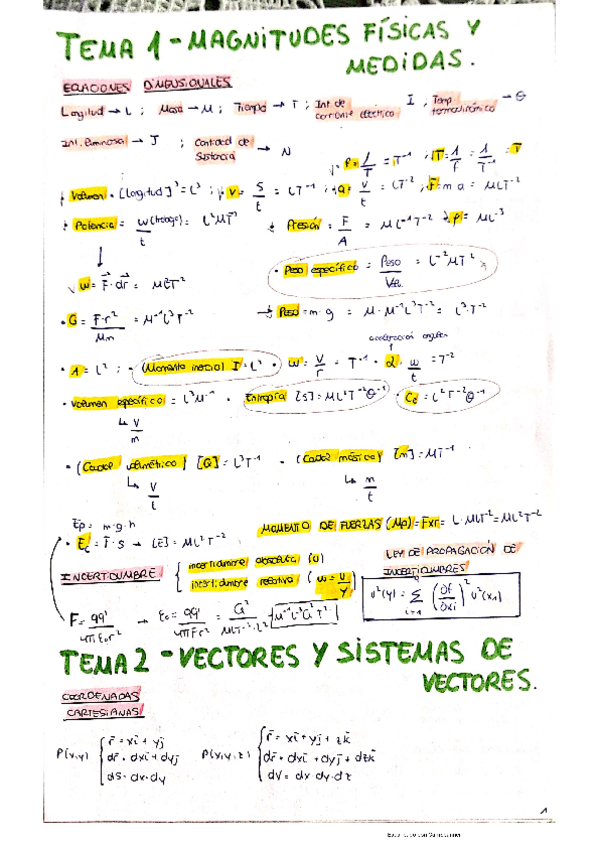 TEMA 1 - MAGNITUDES FÍSICAS Y
MEDIDAS.
ECUACIONES DIMENSIONALES
Longitud → L ; Masa → M ; Tiempo → T ; Int. de corriente eléctrica I ; Temp termodinámica → Θ
Int. luminosa → J ; Cantidad de Sustancia → N
f = 1/T = T⁻¹ ; T = 1/f = 1/T⁻¹ = T
Volumen = [Longitud]³ = L³ ; v = s/t = LT⁻¹ ; a = v/t = LT⁻² ; F = m a = MLT⁻²
Potencia = W (trabajo)/t Presión = F/A = ML⁻¹T⁻² ρ = ML⁻³
W = F · dr Peso específico = Peso/Vol. = L⁻²MT⁻²
G = F·r²/Mm = M⁻¹L³T⁻² → Peso = m·g
aceleración angular
A = L² ; (Momento inercial I = L² · ω = v/r = T⁻¹ · α = ω/t = T⁻²
Volumen específico = L³M⁻¹ · Entropía [S] = ML²T⁻²Θ⁻¹ · Ce = L²T⁻²Θ⁻¹
↳ V/m
(Caudal volumétrico) [Q] = L³T⁻¹ · (Caudal másico) [m] = MT⁻¹
↳ V/t ↳ m/t
Ep = m·g·h
E = F·s → [E] = ML²T⁻² MOMENTO DE FUERZAS (Mo) = Fxr = L·MLT⁻² = ML²T⁻²
INCERTIDUMBRE { incertidumbre absoluta (U) LEY DE PROPAGACIÓN DE
incertidumbre relativa (w = U/y) INCERTIDUMBRES
u²(y) = Σ i=1 (∂f/∂xi)² u²(xi)
F = qq'/4πε₀r² → ε₀ = qq'/4πFr²
TEMA 2 - VECTORES Y SISTEMAS DE
VECTORES.
COORDENADAS
CARTESIANAS
P(x,y) { r = xi + yj P(x,y,z) { r = xi + yj + zk
dr = dxi + dyj dr = dxi + dyj + dzk
ds = dx·dy dV = dx dy dz
1